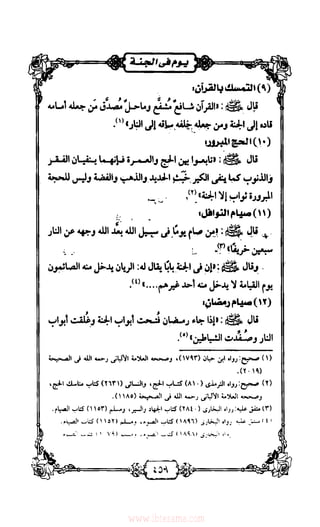 يوم فى الجنة
(٩) التمسك بالقرآن:
قال ﷺ: «القرآن شافع مُشفَّع وماحل مُصدَّق مَن جعله أمامه
قاده إلى الجنة ومن جعله خلفه ساقه إلى النار»(١).
(١٠) الحج المبرور:
قال ﷺ: «تابعوا بين الحج والعمرة فإنهما ينفيان الفقر
والذنوب كما ينفى الكير خبث الحديد والذهب والفضة وليس للحجة
المبرورة ثواب إلا الجنة»(٢).
(١١) صيام النوافل:
قال ﷺ: «مِن صام يومًا فى سبيل الله بعَّد الله وجهه عن النار
سبعين خريفًا»(٣).
وقال ﷺ: «إن فى الجنة بابًا يقال له: الريان يدخل منه الصائمون
يوم القيامة لا يدخل منه أحد غيرهم....»(٤).
(١٢) صيام رمضان:
قال ﷺ: «إذا جاء رمضان فُتحت أبواب الجنة وغُلقت أبواب
النار وصفِّدت الشياطين»(٥).
(١) صحيح: رواه ابن حبان (١٧٩٣)، وصححه العلامة الألبانى رحمه الله فى الصحيحة
(٢٠١٩).
(٢) صحيح: رواه الترمذى (٨١٠) كتاب الحج، والنسائى (٢٦٣١) كتاب مناسك الحج،
وصححه العلامة الألبانى رحمه الله فى الصحيحة (١١٨٥).
(٣) متفق عليه: رواه البخارى (٢٨٤٠) كتاب الجهاد والسير، ومسلم (١١٥٣) كتاب الصيام.
(٤) متفق عليه: رواه البخارى (١٨٩٦) كتاب الصوم، ومسلم (١١٥٢) كتاب الصيام.
٤٥٩
www.ibtesama.com